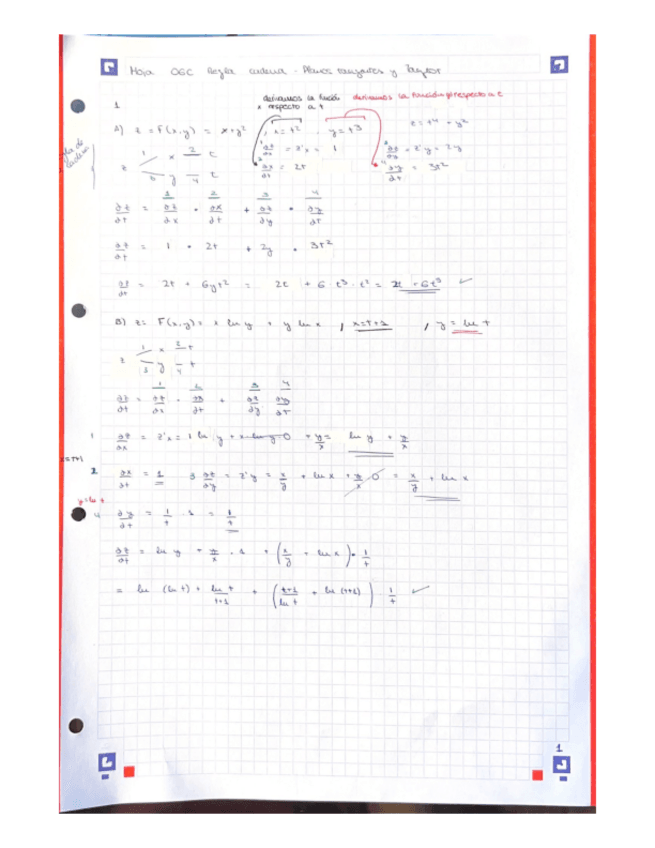 Hoja 06C Regla cadena - Planos tangentes y Taylor
derivamos la función x respecto a t
derivamos la función y respecto a t
1
A) z = F(x,y) = x+y² , x = t² , y = t³
∂z/∂x = z'x = 1
∂z/∂y = z'y = 2y
∂x/∂t = 2t
∂y/∂t = 3t²
∂z/∂t = ∂z/∂x · ∂x/∂t + ∂z/∂y · ∂y/∂t
∂z/∂t = 1 · 2t + 2y · 3t²
∂z/∂t = 2t + 6yt² = 2t + 6 · t³ · t² = 2t + 6t⁵
B) z = F(x,y) = x ln y + y ln x , x = t+1 , y = ln t
1 ∂z/∂x = z'x = 1 ln y + x ln y 0 + y/x = ln y + y/x
x=t+1
2 ∂x/∂t = 1 3 ∂z/∂y = z'y = x/y + ln x + y/x 0 = x/y + ln x
y=ln t
4 ∂y/∂t = 1/t · 1 = 1/t
∂z/∂t = ln y + y/x · 1 + (x/y + ln x) · 1/t
= ln (ln t) + ln t/t+1 + (t+1/ln t + ln (t+1)) 1/t
1